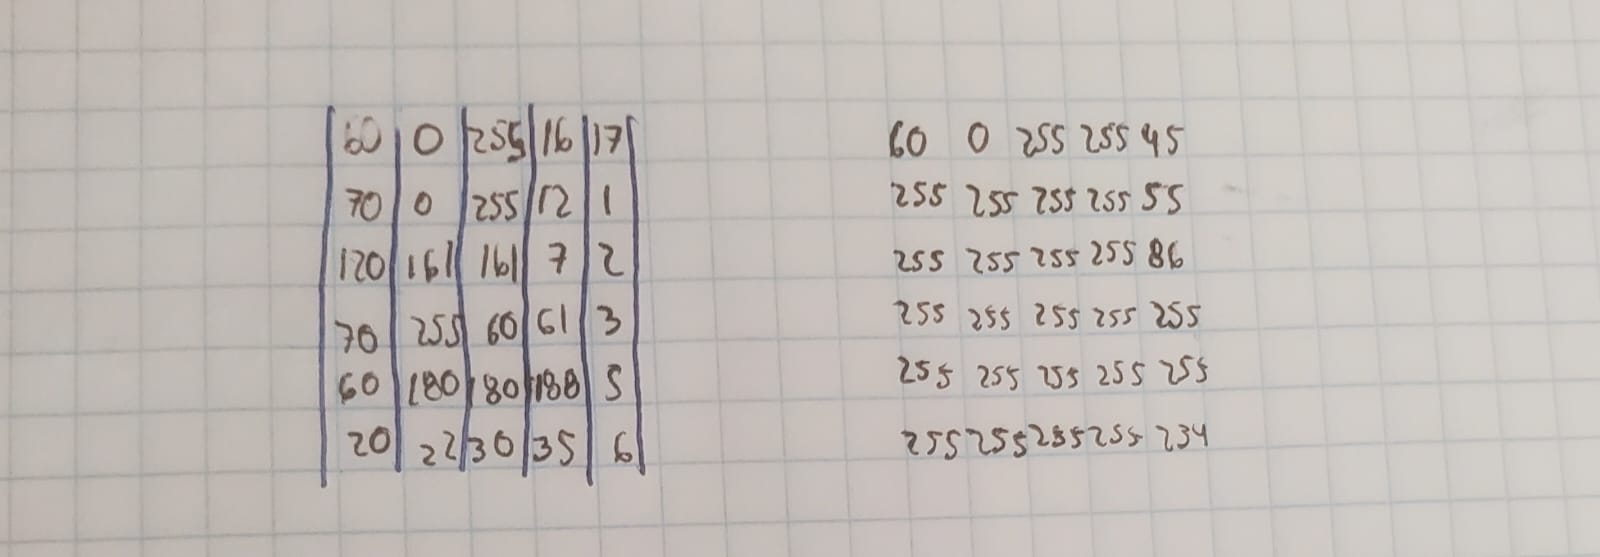 60 0 255 16 17
70 0 255 12 1
120 161 161 7 2
70 255 60 61 3
60 180 180 188 5
20 22 30 35 6
60 0 255 255 45
255 255 255 255 55
255 255 255 255 86
255 255 255 255 255
255 255 255 255 255
255 255 255 255 234